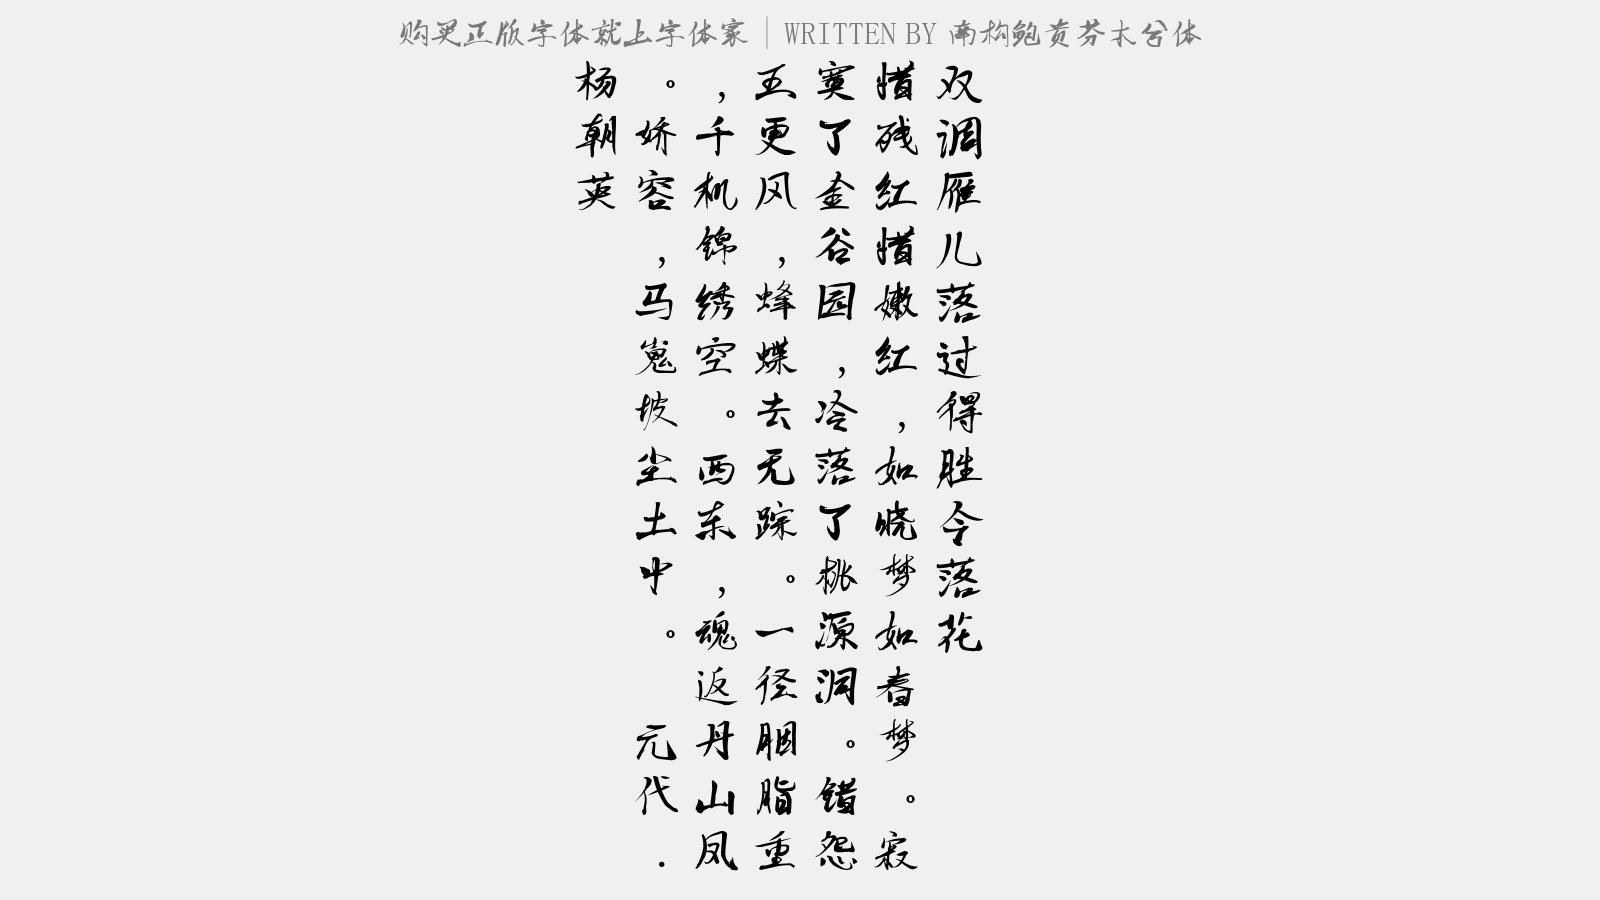 购买正版字体就上字体家｜WRITTEN BY 南构鲍贵芬木兮体
双调雁儿落过得胜令落花
惜残红惜嫩红，如晓梦如春梦。寂
寞了金谷园，冷落了桃源洞。错怨
五更风，蜂蝶去无踪。一径胭脂重
，千机锦绣空。西东，魂返丹山凤
。娇容，马嵬坡尘土中。 元代.
杨朝英